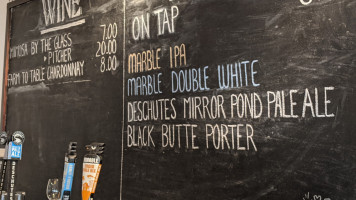 WINE
MIMOSA BY THE GLASS 7.00
" PITCHER 20.00
FARM TO TABLE CHARDONNAY 8.00
ON TAP
MARBLE IPA
MARBLE DOUBLE WHITE
DESCHUTES MIRROR POND PALE ALE
BLACK BUTTE PORTER